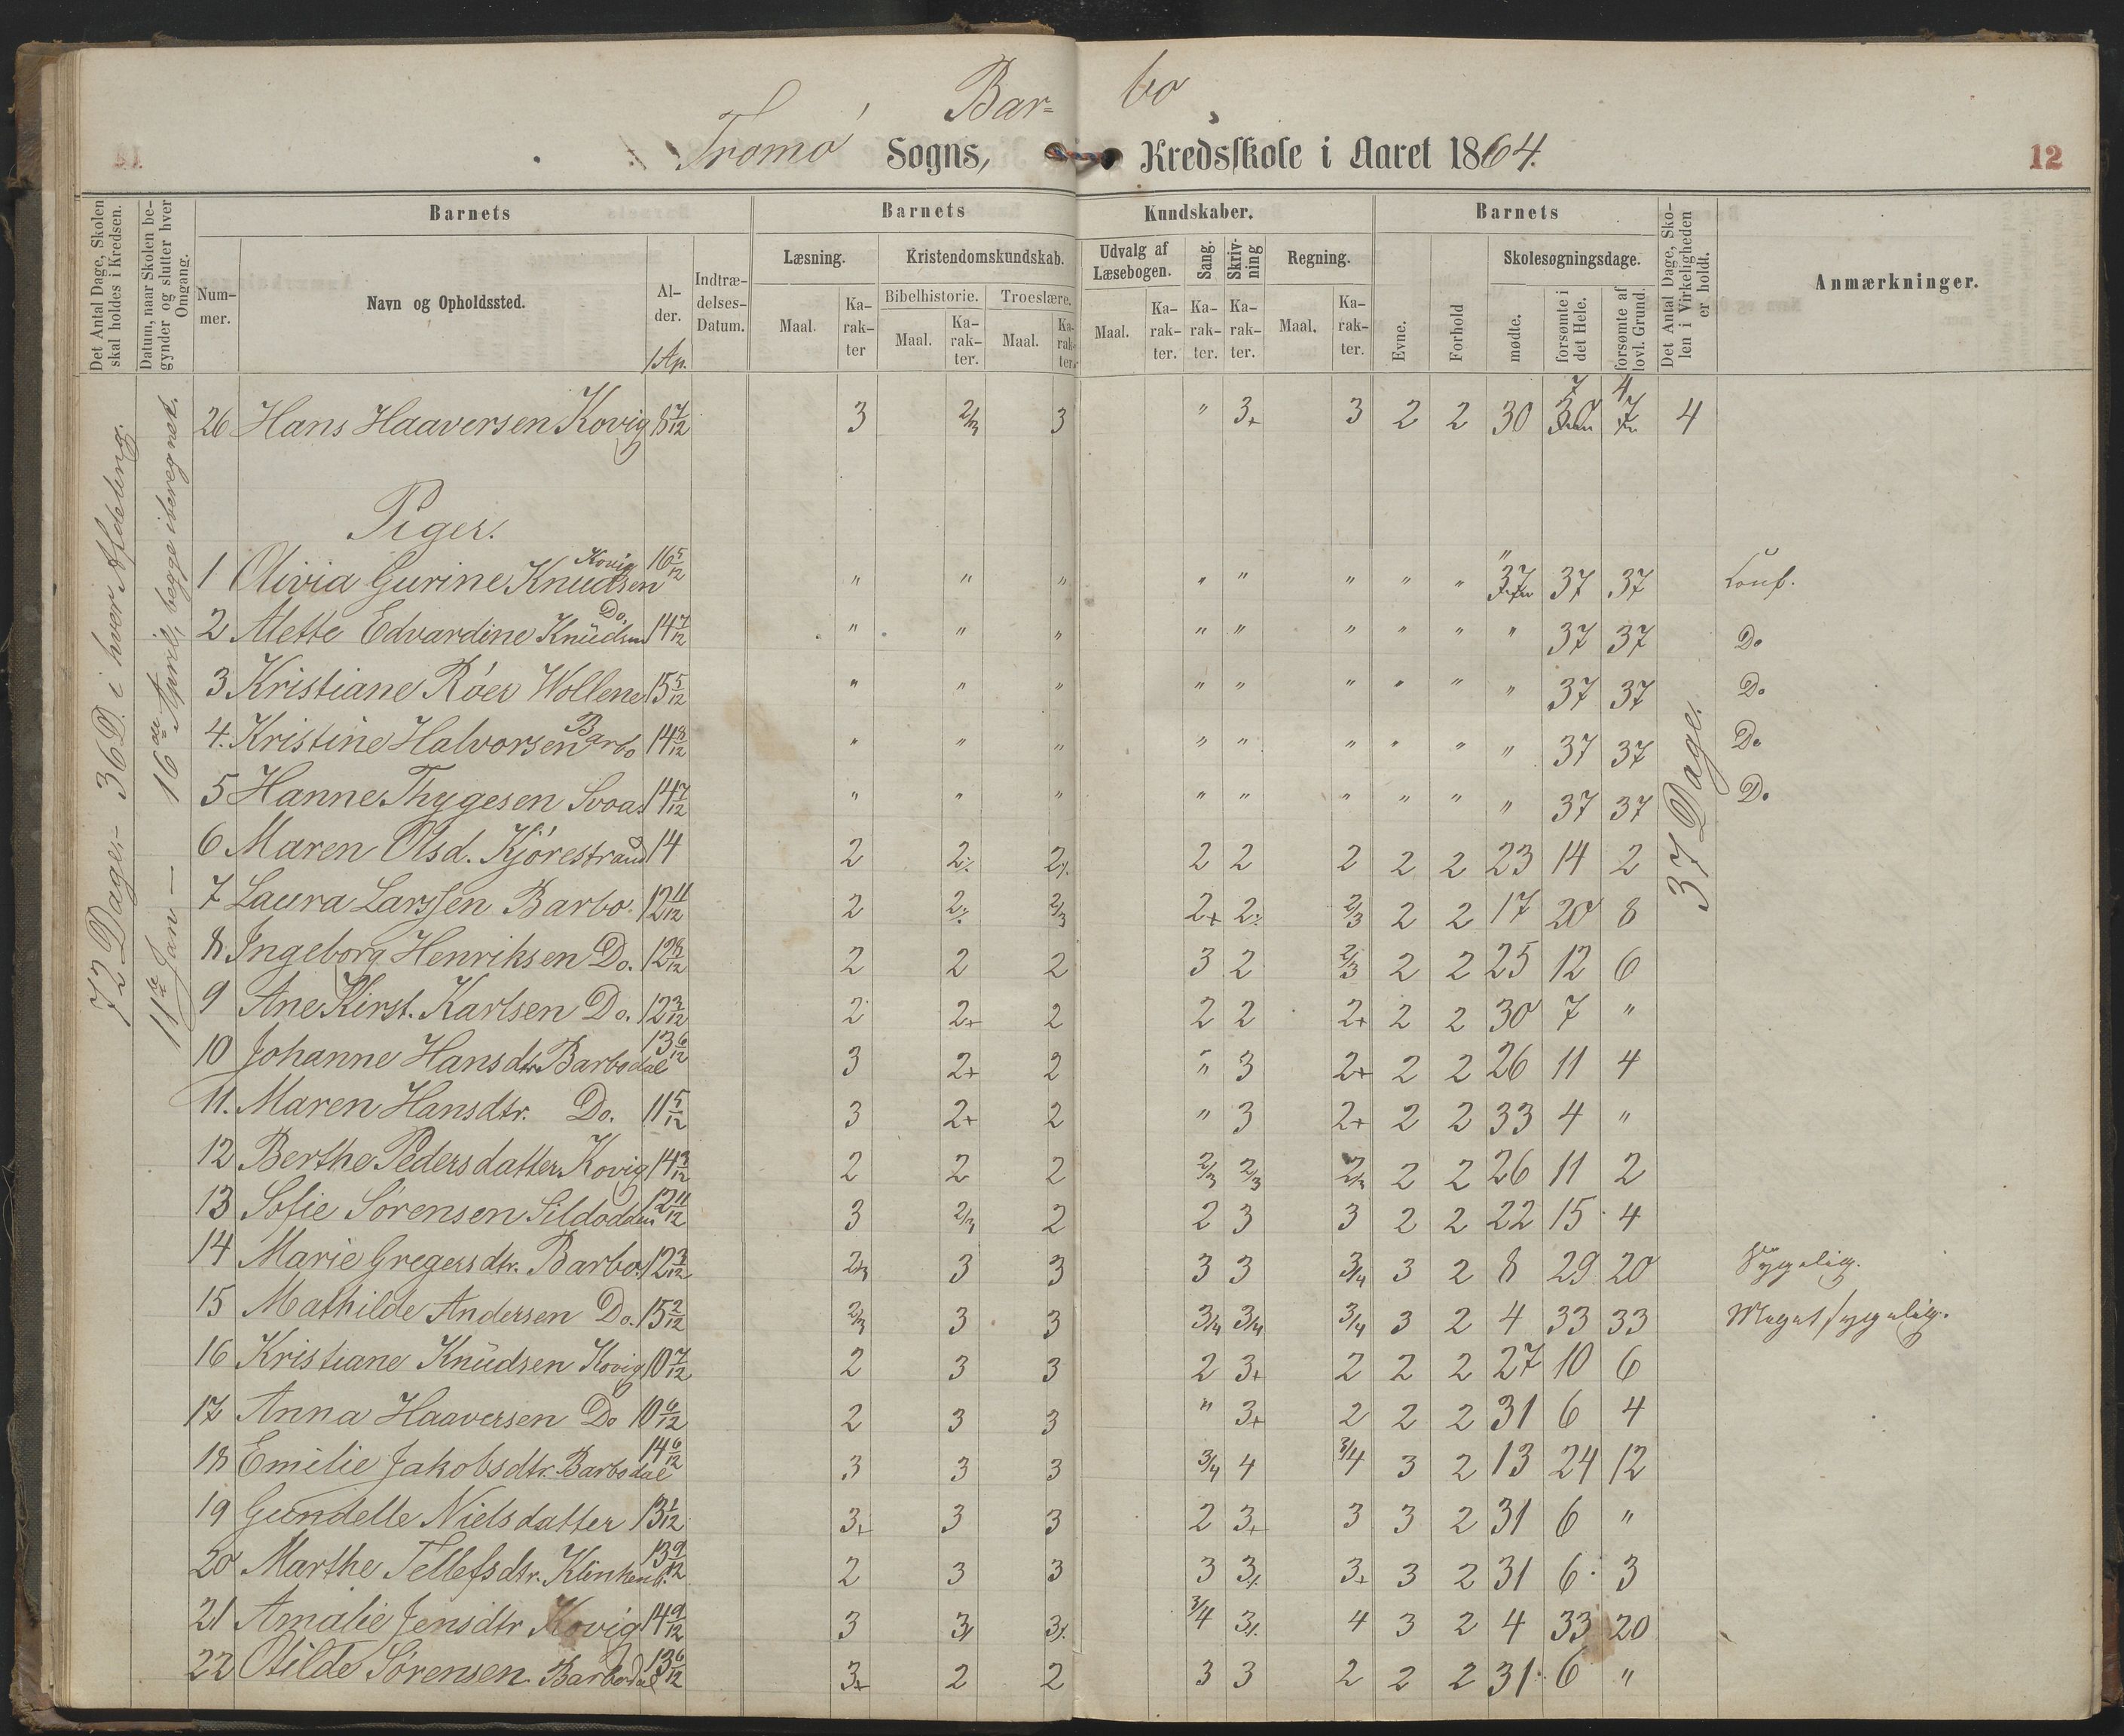 Bar= bo
Tromø Sogns, Kredsskole i Aaret 1864.
12
Det Antal Dage, Skolen skal holdes i Kredsen.
Datum, naar Skolen begynder og slutter hver Omgang.
Barnets
Barnets
Kundskaber.
Barnets
Det Antal Dage, Skolen i Virkeligheden er holdt.
Anmærkninger.
Nummer.
Navn og Opholdssted.
Alder.
1 Ap.
Indtrædelses-Datum.
Læsning.
Kristendomskundskab.
Udvalg af Læsebogen.
Sang.
Skrivning
Regning.
Evne.
Forhold
Skolesøgningsdage.
Bibelhistorie.
Troeslære.
Maal.
Karakter
Maal.
Karakter.
Maal.
Karakter.
Maal.
Karakter.
Karakter.
Karakter.
Maal.
Karakter.
mødte.
forsømte i det Hele.
forsømte af lovl. Grund.
72 Dage - 36 D. i hver Afdeling.
11te Jan — 16de April, begge iberegnet.
26 Hans Haaversen Kovig 8 7/12 3 2/3 3 " 3+ 3 2 2 30 7 4 4
Piger.
1 Olivia Gurine Knudsen Kovig 16 5/12 " " " " " " " " " 37 37 Conf.
2 Mette Edvardine Knüdsen Do. 14 7/12 " " " " " " " " " 37 37 Do
3 Kristiane Röer Wollene 15 5/12 " " " " " " " " " 37 37 Do
4. Kristine Halvorsen Barbo 14 8/12 " " " " " " " " " 37 37 Do
5 Hanne Thygesen 14 7/12 " " " " " " " " " 37 37 Do
37 Dage.
6 Maren Olsd. Kjörestrand 14 2 2÷ 2÷ 2 2 2 2 2 23 14 2
7 Laura Larssen Barbo. 12 11/12 2 2÷ 2/3 2+ 2÷ 2/3 2 2 17 20 8
8 Ingeborg Henriksen Do. 12 8/12 2 2 2 3 2 2/3 2 2 25 12 6
9 Ane Kirst. Karlsen Do. 12 3/12 2 2+ 2 2 2 2+ 2 2 30 7 "
10 Johanne Hansdtr Barbodal 13 6/12 3 2+ 2 " 3 2+ 2 2 26 11 4
11. Maren Hansdtr. Do. 11 5/12 3 2+ 2 " 3 2+ 2 2 33 4 "
12 Berthe Pedersdatter Kovig 14 3/12 2 2 2 2/3 2/3 2/3 2 2 26 11 2
13 Sofie Sörensen Sildodden 12 11/12 3 2/3 2 2 3 3 2 2 22 15 4
14 Marie Gregersdtr. Barbo. 12 3/12 2/3 3 3 3 3 3/4 3 2 8 29 20 Sygelig.
15 Mathilde Andersen Do. 15 2/12 2/3 3 3 3/4 3/4 3/4 3 2 4 33 33 Meget sygelig.
16 Kristiane Knüdsen Kovig 10 7/12 2 3 3 2 3+ 2 2 2 27 10 6
17 Anna Haaversen Do 10 6/12 2 3 3 " 3+ 2 2 2 31 6 4
18 Emilie Jakobsdtr. Barbodal 14 6/12 3 3 3 3/4 4 3/4 3 2 13 24 12
19 Gundelle Nielsdatter 13 1/12 3+ 3 3 2 3+ 3 3 2 31 6 "
20 Marthe Tellefsdtr. Klinkenb. 13 9/12 2 3 3 3 3÷ 3+ 3 2 31 6 3
21 Amalie Jensdtr Kovig 14 9/12 3 3÷ 3÷ 3/4 3÷ 4 3 2 4 33 20
22 Otilde Sörensen. Barbodal 13 6/12 3+ 2 2 3 3 2 2 2 31 6 "